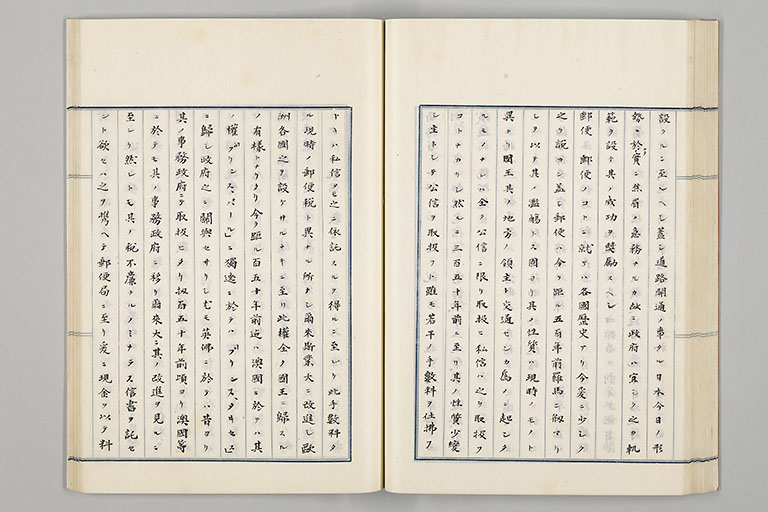 設クルニ至ルヘシ蓋シ道路開通ノ事タル日本今日ノ形
勢ニ於テ實ニ焦眉ノ急務ナルカ故ニ政府ハ宜シク之カ軌
範ヲ設ケ其ノ成功ヲ奬勵スヘシ
郵便 郵便ノコトニ就テハ各國歴史アリ今爰ニ少シク
之ヲ説カン蓋シ郵便ハ今ヲ距ル五百年前羅馬ニ創マリ
シヲ以テ其ノ濫觴トス因ヨリ其ノ性質ハ現時ノモノト
異ナリ國王其ノ地方ノ領主ト交通センカ為メニ起シタ
ルモノナレハ全ク公信ニ限リ取扱ヒ私信ハ之ヲ取扱フ
コトナカリシ然ルニ三百五十年前ニ至リ其ノ性質少變
シ主トシテ公信ヲ取扱フト雖モ若干ノ手數料ヲ仕拂フ
トキハ私信ヲモ之ニ依託スルヲ得ルニ至レリ此手數料タ
ル現時ノ郵便税ト異ナル所ナシ爾来斯業大ニ改進シ歐
洲各國之ヲ設ケサルナキニ至リ此權全ク國王ニ歸スル
ノ有様トナリタリ今ヲ距ル百五十年前迄ハ澳國ニ於テハ其
ノ權「プリンス、パール」ニ獨逸ニ於テハ「プリンス、タキセ」
ニ歸シ政府之ニ關與セサリシモ英佛ニ於テハ昔ヨリ
其ノ事務政府ニテ取扱ヒタリ扨百五十年前頃ヨリ澳國等
ニ於テモ其ノ事務政府ニ移リ爾來大ニ其ノ改進ヲ見ルニ
至レリ然レトモ其ノ税不廉ナルノミナラス信書ヲ託セ
ント欲セハ之ヲ携ヘテ郵便局ニ至リ爰ニ現金ヲ以テ料